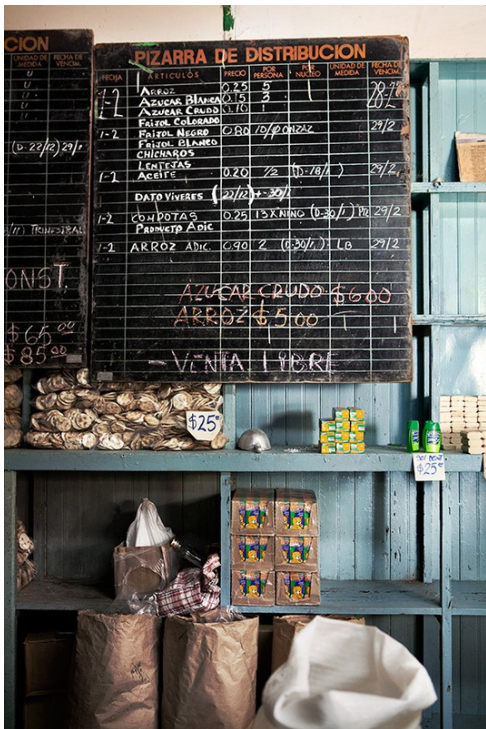 CION
UNIDAD DE MEDIDA
FECHA DE VENCIM.
(D-22/12) 29/1
TRIMESTRAL
ONST.
$65 00
$85 00
PIZARRA DE DISTRIBUCION
FECHA ARTICULOS PRECIO POR PERSONA POR NUCLEO UNIDAD DE MEDIDA FECHA DE VENCIM.
1-2 ARROZ 0.25 5
AZUCAR BLANCA 0.15 3
AZUCAR CRUDO 0.10 1
FRIJOL COLORADO
1-2 FRIJOL NEGRO 0.80 10/ONZAZ 29/2
FRIJOL BLANCO
CHICHAROS
LENTEJAS
1-2 ACEITE 0.20 1/2 (D-18/1) 29/2
DATO VIVERES (22/12) 30/1
1-2 COMPOTAS 0.25 13 X NINO (D-30/1) 29/2
PRODUCTO ADIC
1-2 ARROZ ADIC. 0.90 2 (D-30/1) LB 29/2
AZUCAR CRUDO $6 00
ARROZ $5 00
- VENTA LIBRE
$25
$25